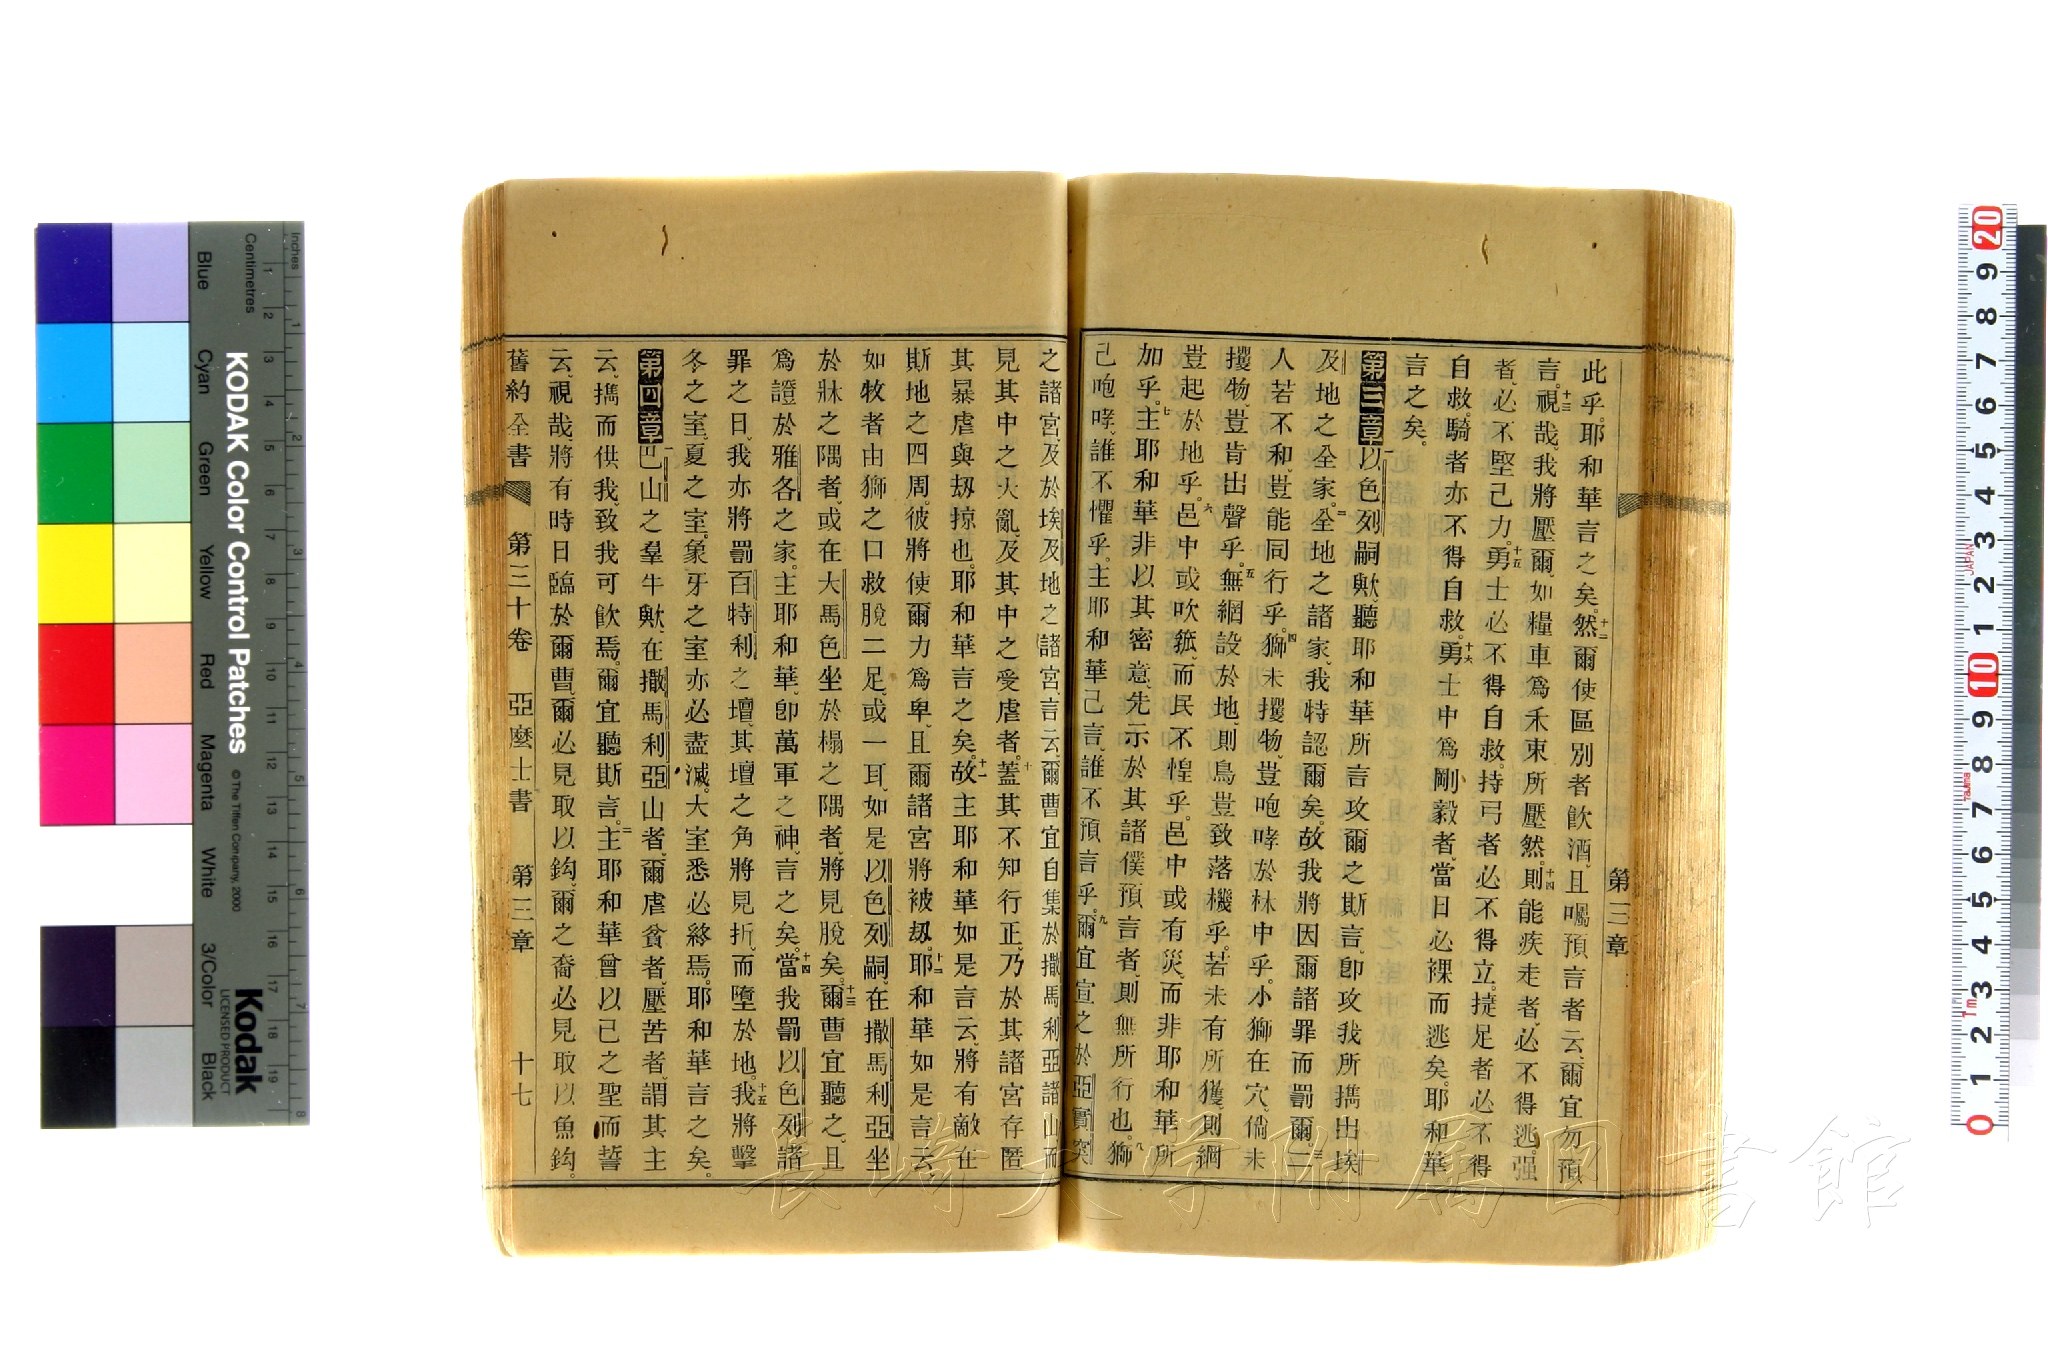 第三章
此乎耶和華言之矣十二然爾使區別者飮酒且囑預言者云爾宜勿預
言十三視哉我將壓爾如糧車爲禾束所壓然十四則能疾走者必不得逃强
者必不堅己力十五勇士必不得自救持弓者必不得立捷足者必不得
自救騎者亦不得自救十六勇士中爲剛毅者當日必裸而逃矣耶和華
言之矣
第三章一以色列嗣歟聽耶和華所言攻爾之斯言卽攻我所攜出埃
及地之全家二全地之諸家我特認爾矣故我將因爾諸罪而罰爾三二
人若不和豈能同行乎四獅未攫物豈咆哮於林中乎小獅在穴倘未
攫物豈肯出聲乎五無網設於地則鳥豈致落機乎若未有所獲則網
豈起於地乎六邑中或吹箛而民不惶乎邑中或有災而非耶和華所
加乎七主耶和華非以其密意先示於其諸僕預言者則無所行也八獅
己咆哮誰不懼乎主耶和華己言誰不預言乎九爾宜宣之於亞實突
之諸宮及於埃及地之諸宮言云爾曹宜自集於撒馬利亞諸山而
見其中之大亂及其中之受虐者十蓋其不知行正乃於其諸宮存匿
其暴虐與刼掠也耶和華言之矣十一故主耶和華如是言云將有敵在
斯地之四周彼將使爾力爲卑且爾諸宮將被刼十二耶和華如是言云
如牧者由獅之口救脫二足或一耳如是以色列嗣在撒馬利亞坐
於牀之隅者或在大馬色坐於榻之隅者將見脫矣十三爾曹宜聽之且
爲證於雅各之家主耶和華卽萬軍之神言之矣十四當我罰以色列諸
罪之日我亦將罰百特利之壇其壇之角將見折而墮於地十五我將擊
冬之室夏之室象牙之室亦必盡滅大室悉必終焉耶和華言之矣
第四章一巴山之羣牛歟在撒馬利亞山者爾虐貧者壓苦者謂其主
云攜而供我致我可飮焉爾宜聽斯言二主耶和華曾以己之聖而誓
云視哉將有時日臨於爾曹爾必見取以鈎爾之裔必見取以魚鈎
舊約全書 第三十卷 亞麼士書 第三章 十七
KODAK Color Control Patches
©The Tiffen Company, 2000
Kodak
LICENSED PRODUCT
Inches
Centimetres
Blue
Cyan
Green
Yellow
Red
Magenta
White
3/Color
Black
長崎大学附属図書館